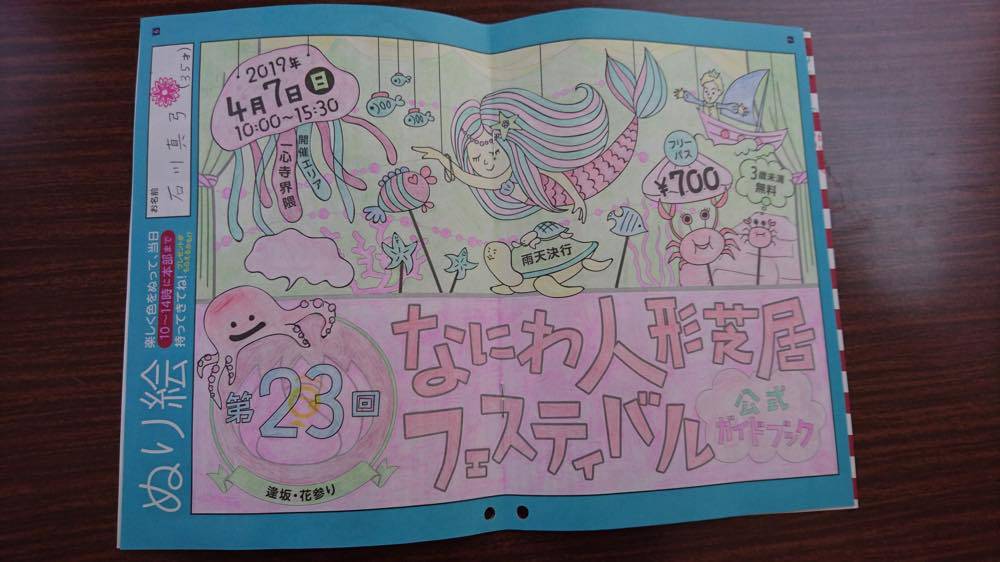 2019年
4月7日日
10:00〜15:30
開催エリア
一心寺界隈
フリー
パス
¥700
3歳未満
無料
雨天決行
第23回
逢坂・花参り
なにわ人形芝居
フェスティバル
公式
ガイドブック
ぬり絵
楽しく色をぬって、当日
10〜14時に本部まで
持ってきてね!
プレゼントが
もらえるかも!?
お名前
石川真弓
(35才)